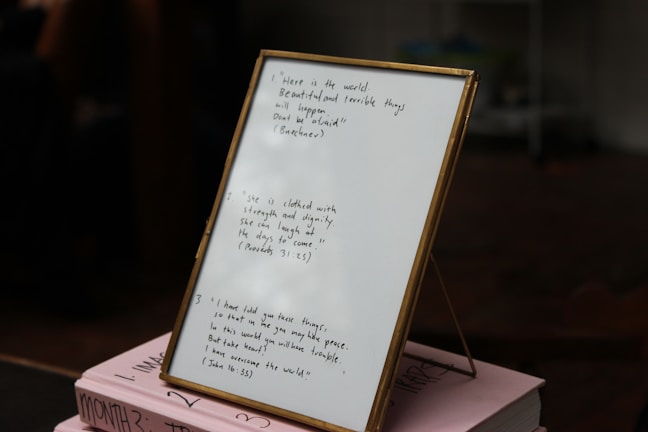 1. "Here is the world.
Beautiful and terrible things
will happen.
Dont be afraid"
(Buechner)
2. "She is clothed with
strength and dignity.
She can laugh at
the days to come."
(Proverbs 31:25)
3 "I have told you these things,
so that in me you may have peace.
In this world you will have trouble.
But take heart!
I have overcome the world."
(John 16:33)
1. IMAG
2
3
MONTH 2: